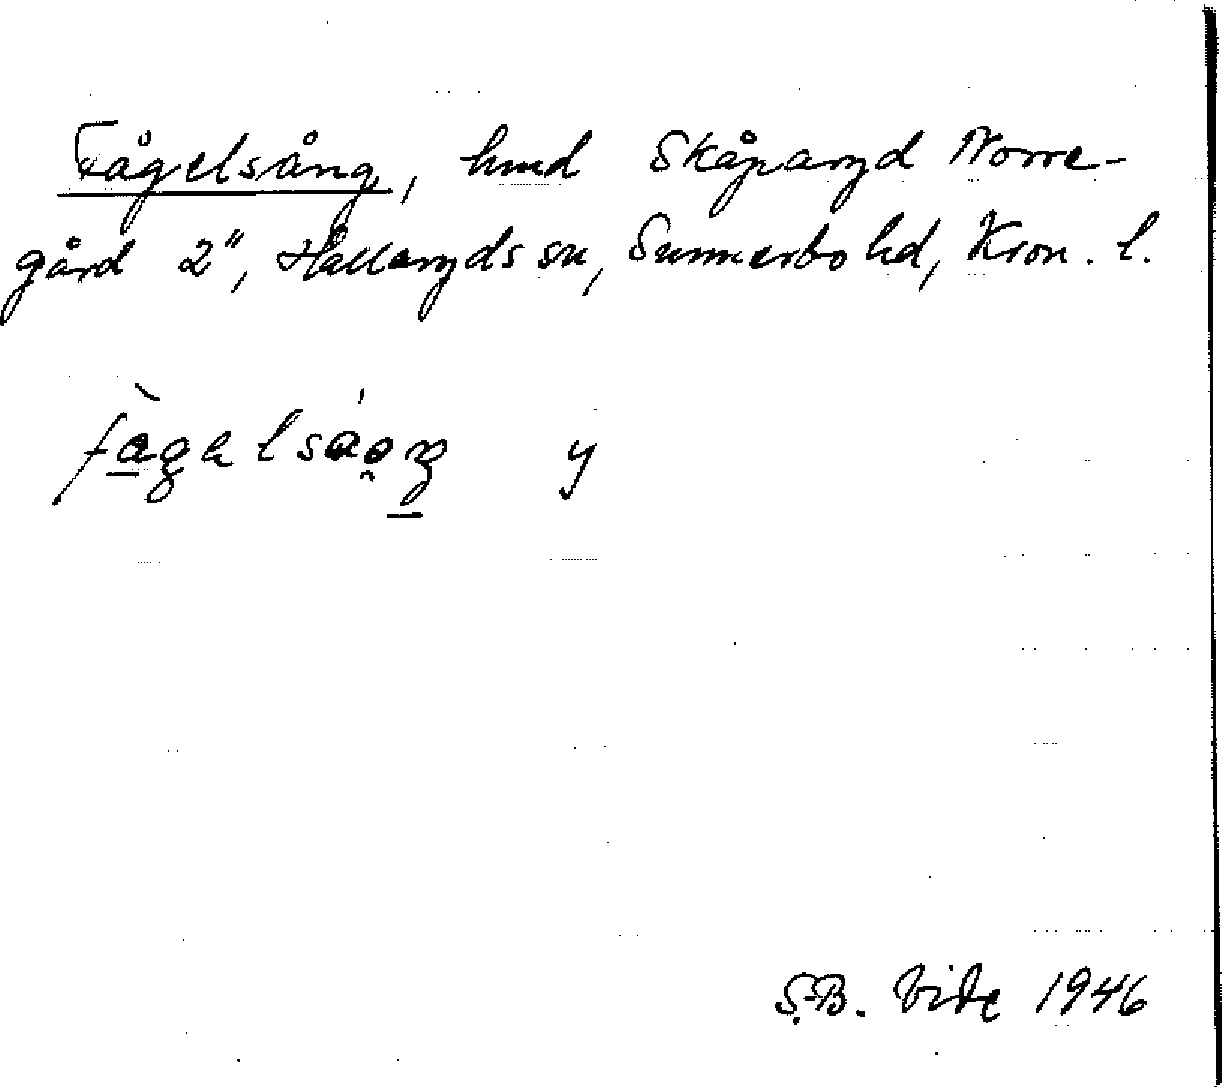 Fågelsång, lund Skåparyd Norre-
gård 2", Hallaryds sn, Sunnerbo hd, Kron. l.
fàgalsáoŋ y
S.-B. Vide 1946